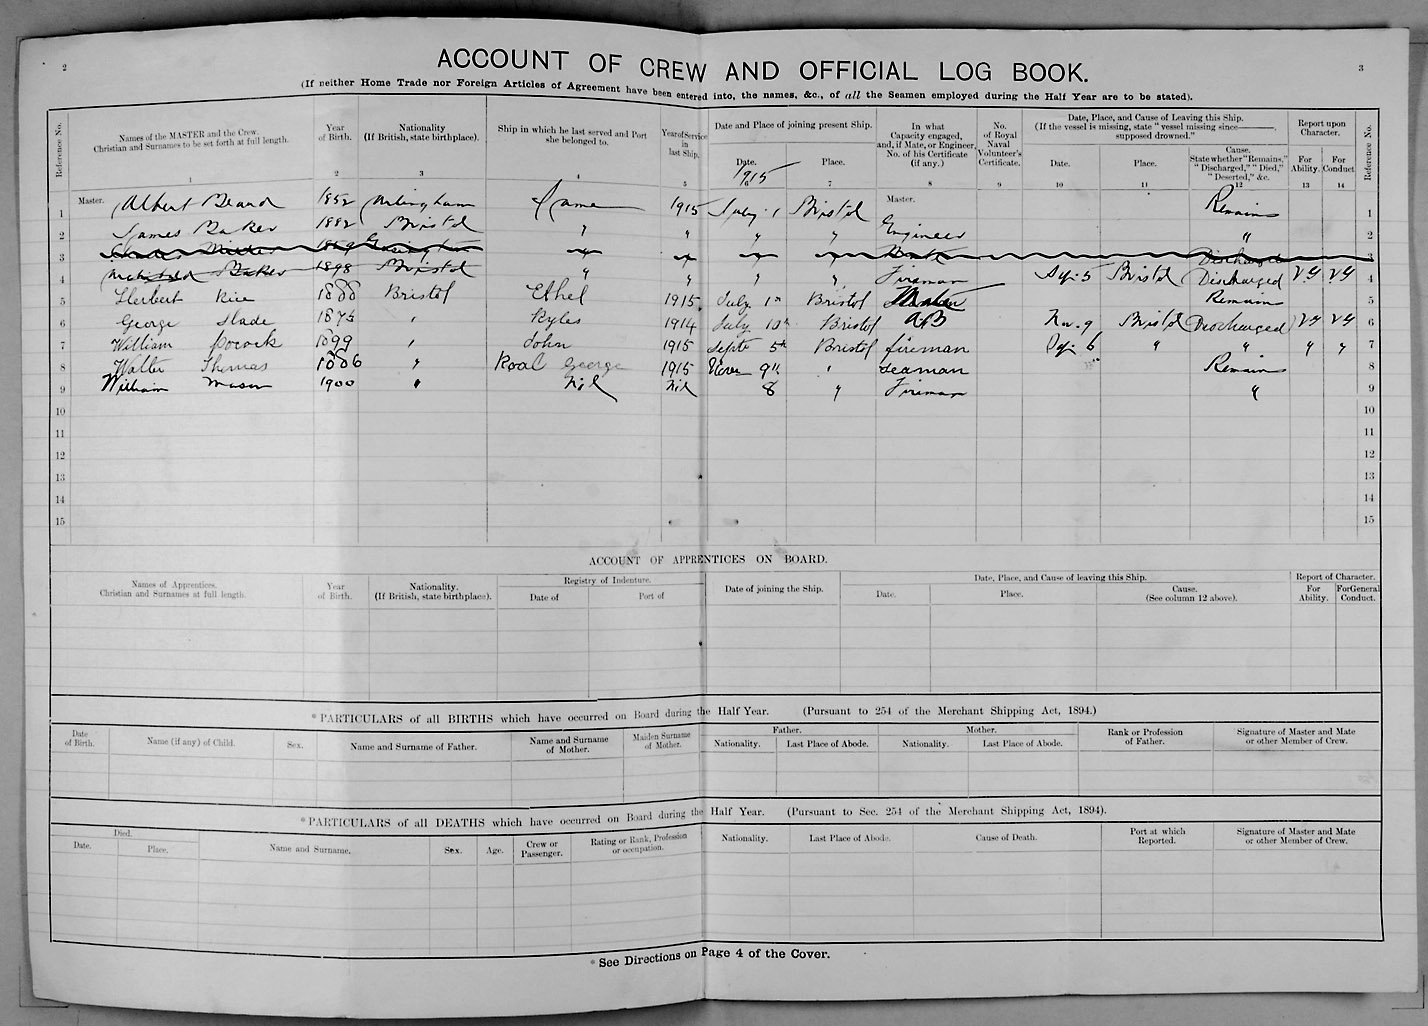 2
3
ACCOUNT OF CREW AND OFFICIAL LOG BOOK.
(If neither Home Trade nor Foreign Articles of Agreement have been entered into, the names, &c., of all the Seamen employed during the Half Year are to be stated).
Reference No. Names of the MASTER and the Crew. Christian and Surnames to be set forth at full length. Year of Birth. Nationality (If British, state birthplace). Ship in which he last served and Port she belonged to. Year of Service in last Ship. Date and Place of joining present Ship. In what Capacity engaged, and, if Mate, or Engineer, No. of his Certificate (if any.) No. of Royal Naval Volunteer's Certificate. Date, Place, and Cause of Leaving this Ship. (If the vessel is missing, state "vessel missing since———, supposed drowned." Report upon Character. Reference No.
Date. Place. Date. Place. Cause. State whether "Remains," "Discharged," "Died," "Deserted," &c. For Ability. For Conduct
1 2 3 4 5 6 7 8 9 10 11 12 13 14
1915
1 Master. Albert Beard 1852 Arlingham Same 1915 July 1 Bristol Master. Remains 1
2 James Baker 1882 Bristol " " " " Engineer " 2
3 Discharged 3
4 Archibald Baker 1898 Bristol " " " " Fireman Sep 5 Bristol Discharged VG VG 4
5 Herbert Rice 1888 Bristol Ethel 1915 July 1st Bristol Remains 5
6 George Slade 1875 " Kyles 1914 July 10th Bristol AB Nov 9 Bristol Discharged VG VG 6
7 William Pocock 1899 " John 1915 Septr 5th Bristol fireman 6 " " " " 7
8 Walter Thomas 1886 " Roal George 1915 Nover 9th " seaman Remains 8
9 William Mason 1900 " Nil Nil 8 " Fireman " 9
10 10
11 11
12 12
13 13
14 14
15 15
ACCOUNT OF APPRENTICES ON BOARD.
Names of Apprentices. Christian and Surnames at full length. Year of Birth. Nationality. (If British, state birthplace). Registry of Indenture. Date of joining the Ship. Date, Place, and Cause of leaving this Ship. Report of Character.
Date of Port of Date. Place. Cause. (See column 12 above). For Ability. For General Conduct.
*PARTICULARS of all BIRTHS which have occurred on Board during the Half Year. (Pursuant to 254 of the Merchant Shipping Act, 1894.)
Date of Birth. Name (if any) of Child. Sex. Name and Surname of Father. Name and Surname of Mother. Maiden Surname of Mother. Father. Mother. Rank or Profession of Father. Signature of Master and Mate or other Member of Crew.
Nationality. Last Place of Abode. Nationality. Last Place of Abode.
*PARTICULARS of all DEATHS which have occurred on Board during the Half Year. (Pursuant to Sec. 254 of the Merchant Shipping Act, 1894).
Died. Name and Surname. Sex. Age. Crew or Passenger. Rating or Rank, Profession or occupation. Nationality. Last Place of Abode. Cause of Death. Port at which Reported. Signature of Master and Mate or other Member of Crew.
Date. Place.
*See Directions on Page 4 of the Cover.